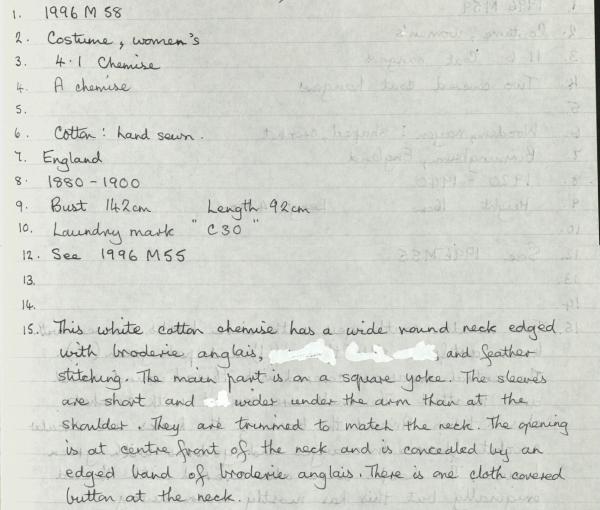 1. 1996 M 58
2. Costume, women's
3. 4.1 Chemise
4. A chemise
5.
6. Cotton : hand sewn.
7. England
8. 1880 - 1900
9. Bust 142cm Length 92cm
10. Laundry mark "C30"
12. See 1996 M55
13.
14.
15. This white cotton chemise has a wide round neck edged
with broderie anglais, , and feather
stitching. The main part is on a square yoke. The sleeves
are short and wider under the arm than at the
shoulder. They are trimmed to match the neck. The opening
is at centre front of the neck and is concealed by an
edged band of broderie anglais. There is one cloth covered
button at the neck.